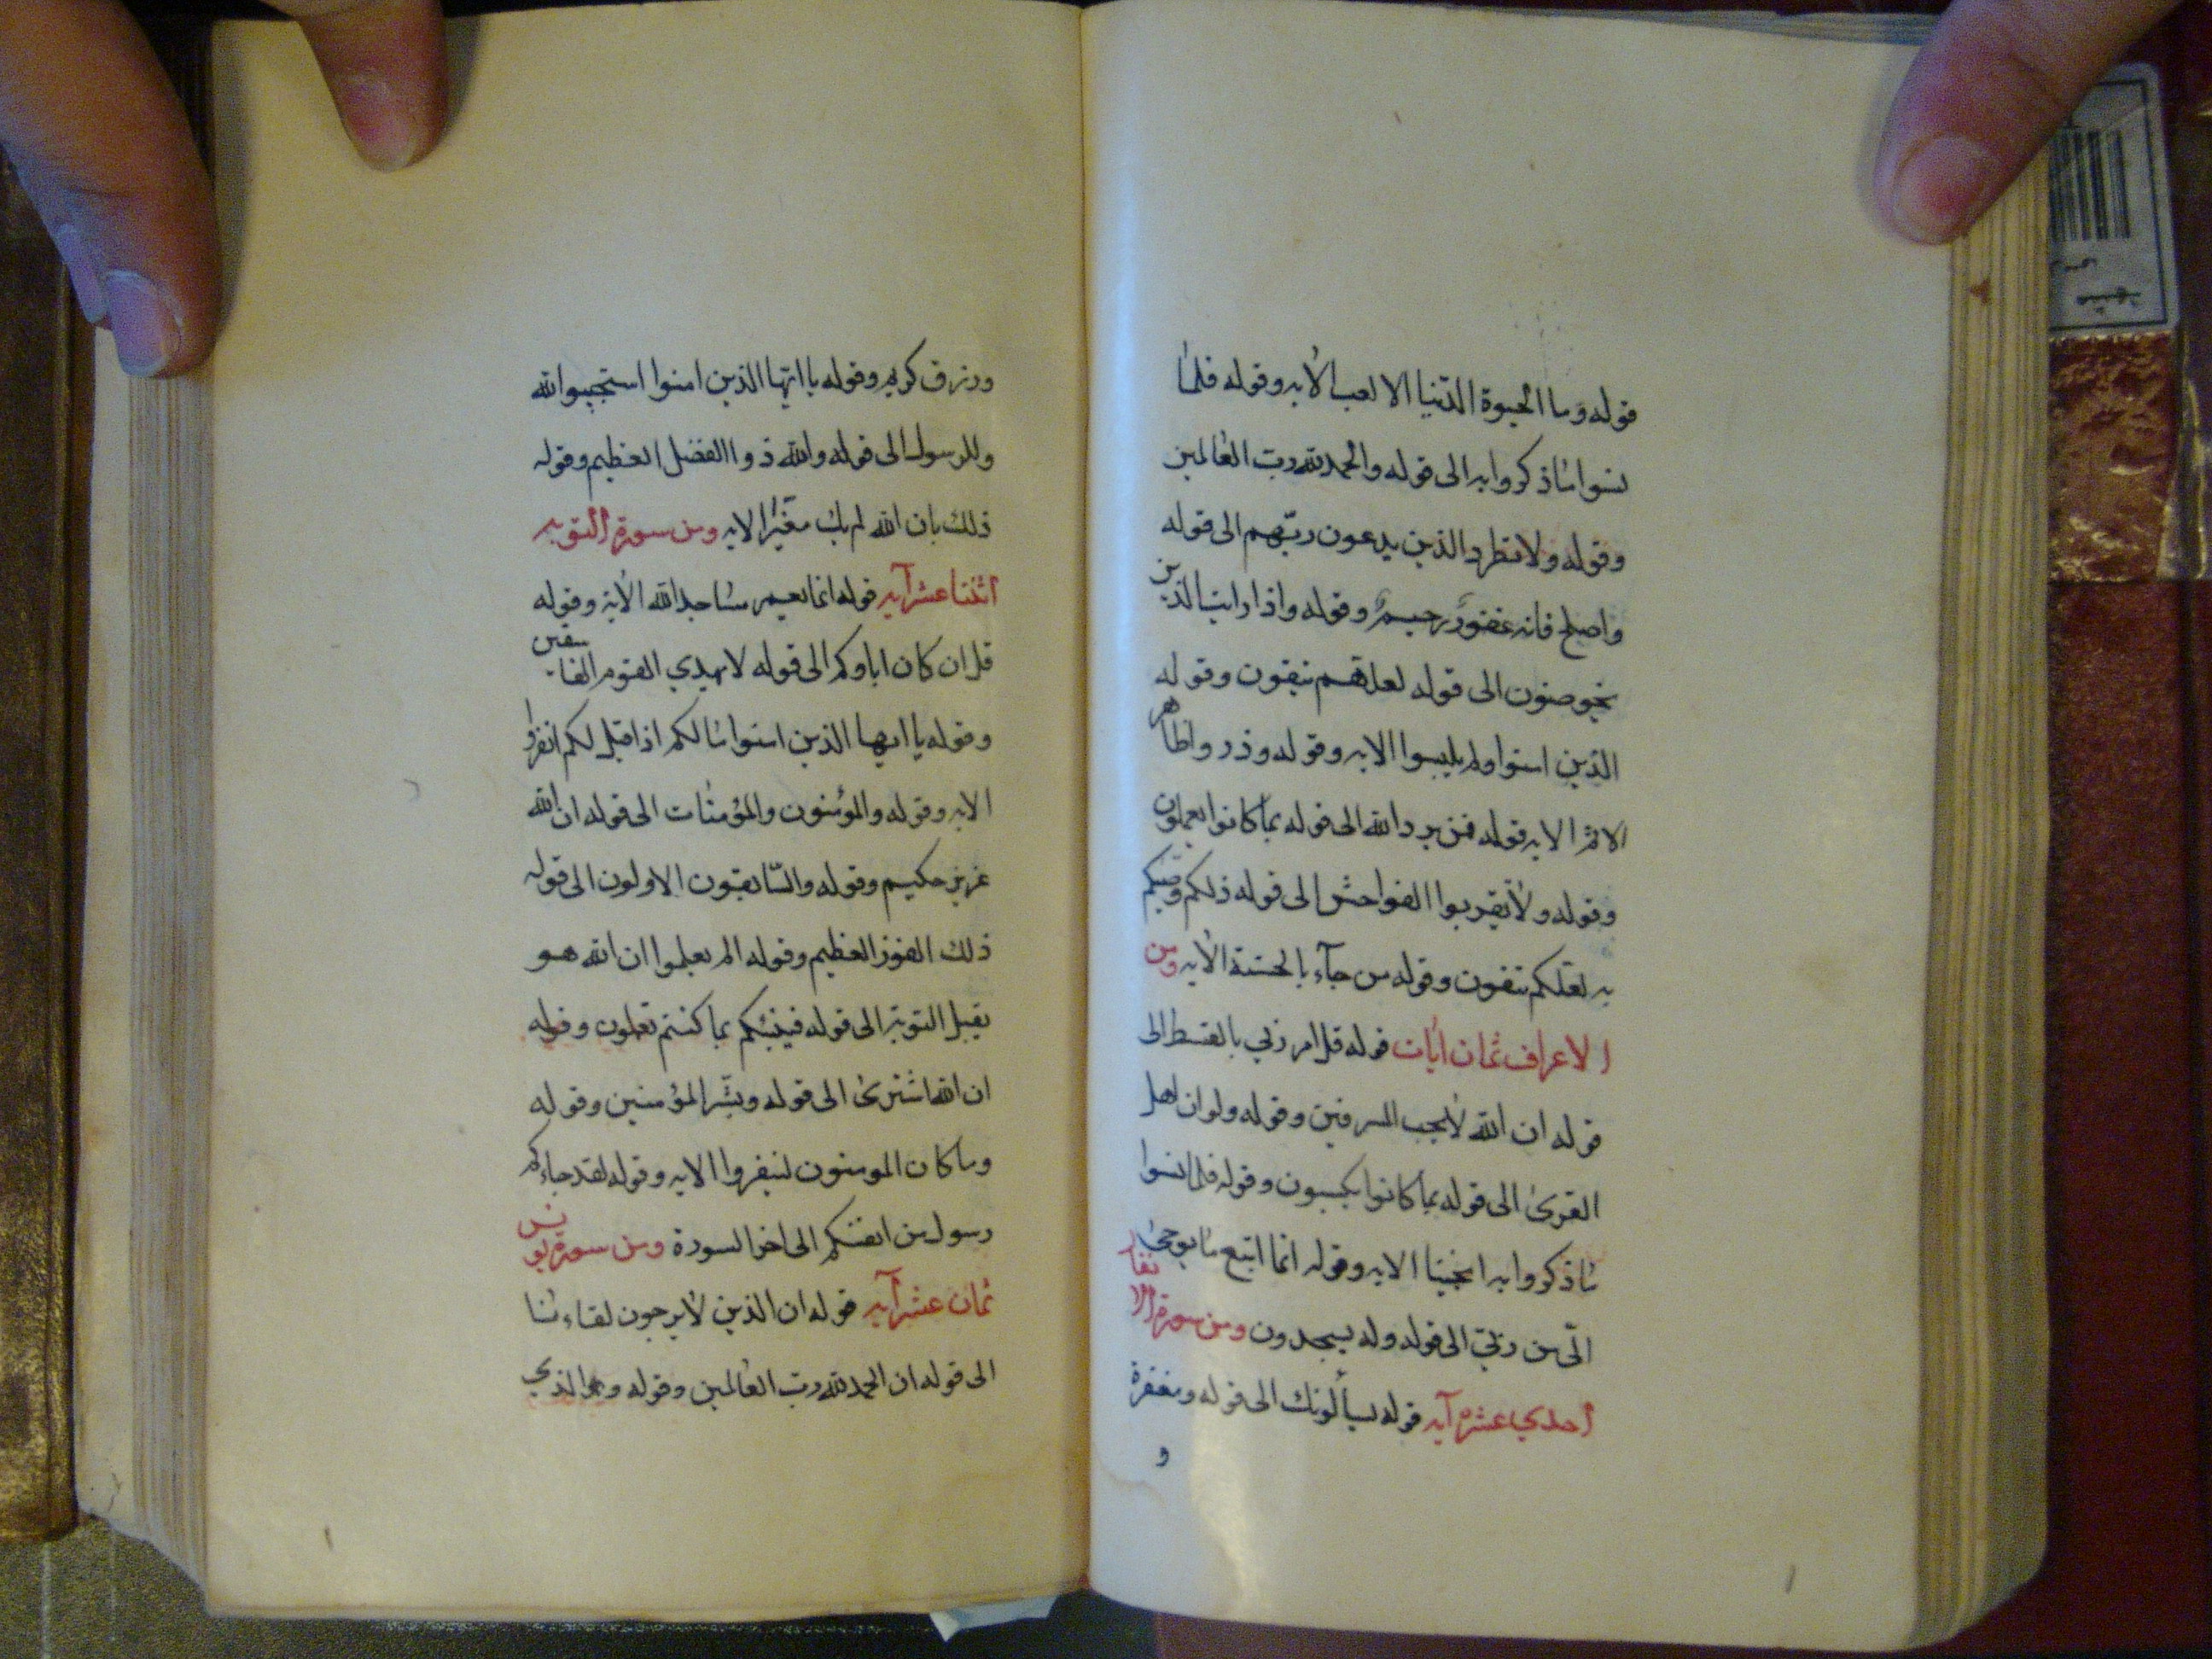 قوله وما الحيوة الدّنيا الا لعب الاٰيه وقوله فلمّا
نسوا ماٰذكروا به الى قوله والحمد لله ربّ العٰالمين
وقوله ولا تطرد الذين يدعون ربّهم الى قوله
واصلح فانه غفورٌ رحيمٌ وقوله واذا رايت الذين
يخوضون الى قوله لعلهم يتقون وقوله
الذين امنوا ولم يلبسوا الايه وقوله وذروا ظاهر
الاثم الايه قوله فمن يرد الله الى قوله بماكانوا يعملون
وقوله ولاٰ تقربوا الفواحش الى قوله ذلكم وصّيكم
به لعلّكم تتقون وقوله من جآء بالحسنة الاٰيه ومن
الاعراف ثمان اٰيات قوله قل امر ربي بالقسط الى
قوله ان الله لاٰيحب المسرفين وقوله ولوان اهل
القرىٰ الى قوله بماكانوا يكسبون وقوله فلما نسوا
ماٰذكروا به انجينا الايه وقوله انما اتبع ماٰيوحىٰ
الىّ من ربّى الى قوله وله يسجدون ومن سورة الانفال
احدي عشره آيه قوله يسألونك الى قوله ومغفرة
و
ورزق كريم وقوله يا ايّها الذين امنوا استجيبوا لله
وللرسول الى قوله والله ذوا الفضل العظيم وقوله
ذلك بان الله لم يك مغيّرا الايه ومن سورة التوبه
اثنتا عشر آيه قوله انما يعمر مساجد الله الاٰية وقوله
قل ان كان اباوكم الى قوله لا يهدي القوم الفاسقين
وقوله ياايها الذين امنوا مالكم اذا قيل لكم انفروا
الايه وقوله والموٴمنون والموٴمنات الى قوله ان الله
عزيز حكيم وقوله والسّابقون الاولون الى قوله
ذلك الفوز العظيم وقوله الم يعلموا ان الله هو
يقبل التوبة الى قوله فينبئكم بما كنتم تعملون وقوله
ان الله اشترىٰ الى قوله وبشّر المؤمنين وقوله
وماكان المومنون لينفروا الايه وقوله لقد جاءكم
رسول من انفسكم الى اخر السورة ومن سورة يونس
ثمان عشر آيه قوله ان الذين لاٰيرجون لقاءنا
الى قوله ان الحمد لله ربّ العٰالمين وقوله وهو الذي